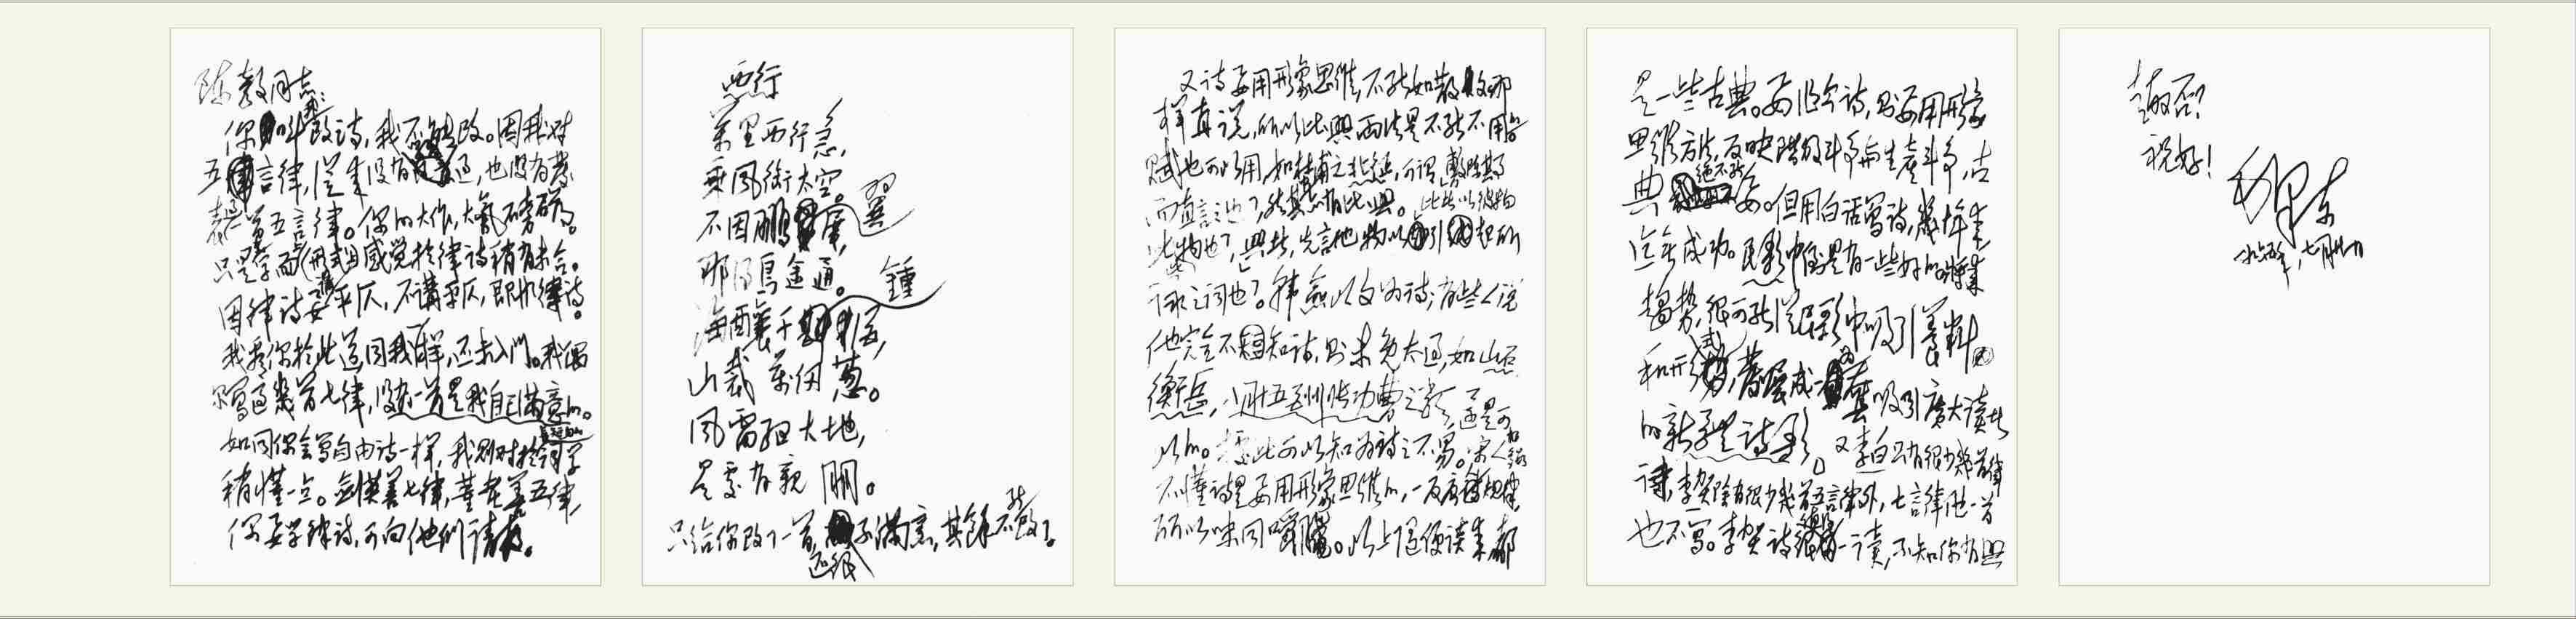 陈毅同志：
你叫我改诗，我不能改。因我对
五言律，从来没有学过，也没有发
表过一首五言律。你的大作，大气磅礴。
只是在字面上（形式上）感觉于律诗稍有未合。
因律诗要讲平仄，不讲平仄，即非律诗。
我看你于此道，同我一样，还未入门。我偶
尔写过几首七律，没有一首是我自己满意的。
如同你会写自由诗一样，我则对于长短句的词学
稍懂一点。剑英善七律，董老善五律，
你要学律诗，可向他们请教。
西行
萬里西行急，
乘風御太空。
不因鹏翼展，
哪得鳥途通。
海酿千鍾酒，
山裁萬仞葱。
風雷驱大地，
是處有親朋。
只给你改了一首，还很不满意，其餘不能改了。
又诗要用形象思维，不能如散文那
样直说，所以比興两法是不能不用的。
赋也可以用，如杜甫之北征，可谓敷陈其事
而直言之也，然其中亦有比興。比者，以彼物
比此物也，興者，先言他物以引起所
詠之词也。韩愈以文为诗；有些人说
他完全不知诗，则未免太过，如山石，
衡岳，八月十五酬张功曹之类，还是可
以的。据此可以知为诗之不易。宋人多数
不懂诗是要用形象思维的，一反唐人规律，
所以味同嚼蠟。以上随便谈来，都
是一些古典。要作今诗，则要用形象
思维方法，反映阶级斗争与生産斗争，古
典绝不能要。但用白话写诗，幾十年来，
迄无成功。民歌中倒是有一些好的。将来
趋势，很可能从民歌中吸引養料
和形式，發展成为一套吸引廣大读者
的新體诗歌。又李白只有很少幾首律
诗，李贺除有很少幾首五言律外，七言律他一首
也不写。李贺诗很值得一读，不知你有興
趣否？
祝好！
毛泽东
一九六五年，七月廿一日